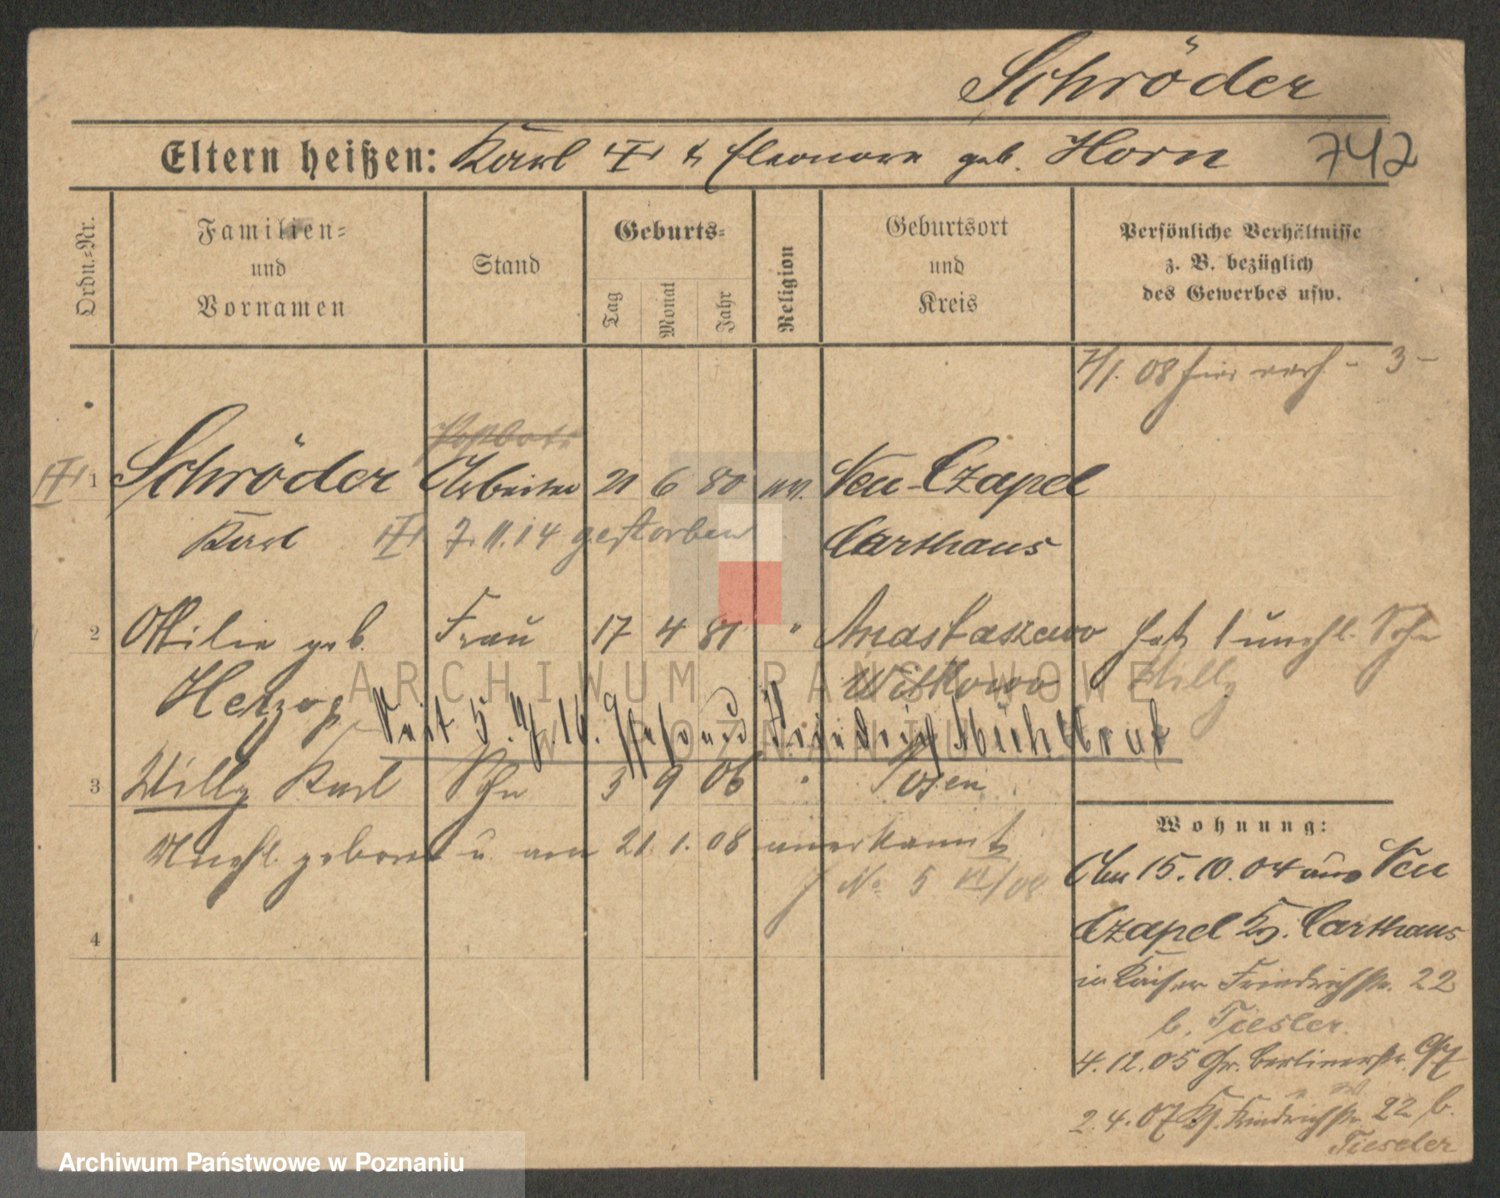 Schröder
Eltern heißen: Karl ☩ & Eleonore geb. Horn
742
Ordn.-Nr.
Familien-
und
Vornamen
Stand
Geburts-
Tag
Monat
Jahr
Religion
Geburtsort
und
Kreis
Persönliche Verhältnisse
z. B. bezüglich
des Gewerbes usw.
7/1. 08 hier verh - 3 -
Postbote
1 Schröder Arbeiter 21 6 80 ev. Neu-Czapel
Karl 7.11.14 gestorben Carthaus
2 Ottilie geb. Frau 17 4 81 " Anastaszewo hat 1 unehl. Sohn
Herzog Witkowo Willy
Seit 5. 16. Ehefrau Friedrich
3 Willy Karl Sohn 5 9 06 " Posen
Unehl. geboren u. am 21.1.08 anerkannt
No 5 VI/08
4
Wohnung:
Am 15.10.04 aus Neu
Czapel Kr. Carthaus
in Kaiser Friedrichstr. 22
b. Tiesler.
4.12.05 Gr. Berlinerstr. 97
2.4.07 K. Friedrichstr. 22 b.
Tieseler
ARCHIWUM PAŃSTWOWE
W POZNANIU
Archiwum Państwowe w Poznaniu